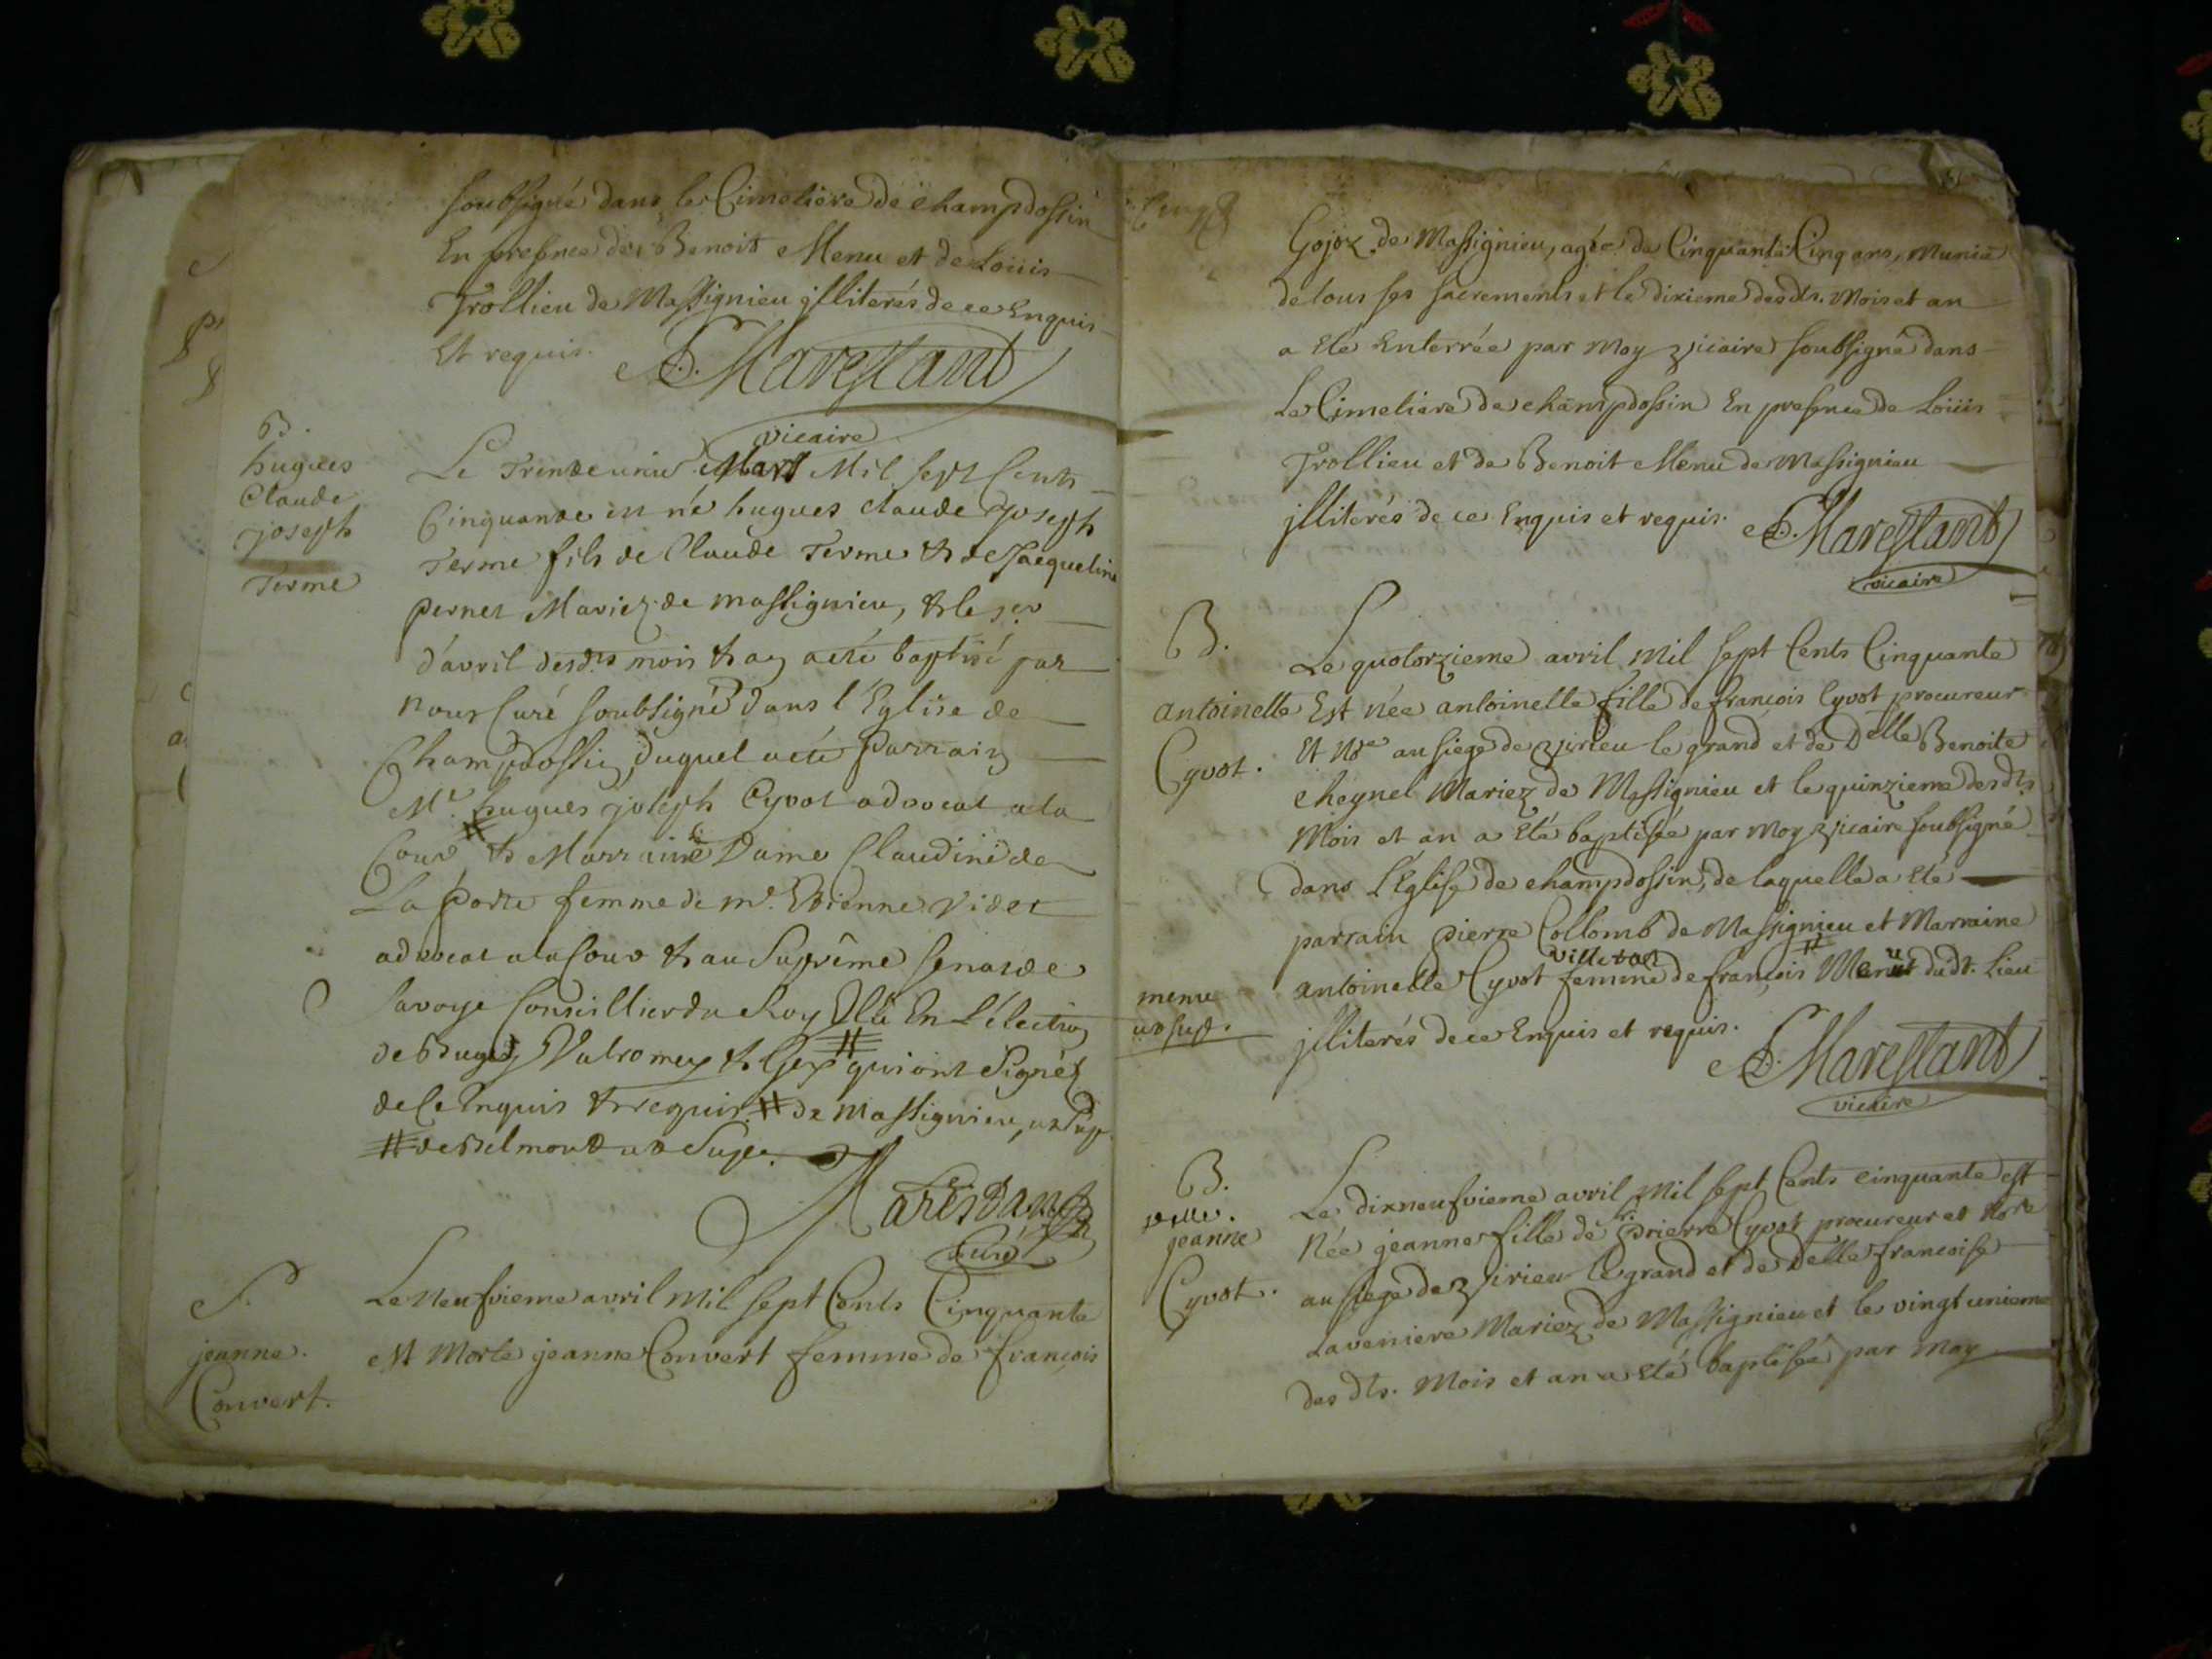 soubsigné dans le Cimetiere de champdossin
En presnce de Benoit Menu et de Loüis
Trollieu de Massignieu jlliterés de ce Enquis
Et requis. Marestant
vicaire
B.
hugues
Claude
joseph
Terme
Le Trente unie Mars Mil sept Cents
Cinquante est né hugues claude Joseph
Terme fils de Claude Terme & de Jacqueline
pernet Mariez de massignieu, & le per
d'avril desdts mois & an a eté baptisé par
nous Curé soubsigné dans l'Eglise de
Champdossin, duquel a eté Parrain
Mr. hugues joseph Cyvot advocat a la
Cour & Marraine Dame Claudine de
La porte femme de mr. Etienne Videt
advocat a la Cour & au Suprême senat de
savoye Conseillier du Roy Elû En L'élection
de Bugey Valromey & Gex qui ont Signéz
de Ce Enquis & requis # de Massignieu, ut sup.
# de Belmont ut Supr.
Marestant
Curé
S.
jeanne
Convert.
Le Neufvieme avril mil sept Cents Cinquante
est Morte jeanne Convert femme de françois
Gojoz de Massignieu, agée de Cinquante Cinq ans, Munie
de tous ses sacrements et le dixieme desdts. Mois et an
a Eté Enterrée par Moy vicaire soubsigné dans
Le Cimetiere de champdossin En presnce de Loüis
Trollieu et de Benoit Menu de Massignieu
jlliterés de ce Enquis et requis. Marestant
vicaire
B.
antoinette
Cyvot.
Le quatorzieme avril Mil sept Cents Cinquante
Est née antoinette fille de françois Cyvot procureur
Et Nre au siege de virieu le grand et de Delle Benoite
cheynel Mariez de Massignieu et le quinzieme desdts
Mois et an a Eté baptisée par Moy vicaire soubsigné
dans L'Église de champdossin, de laquelle a Eté
parrain pierre Collomb de Massignieu et Marraine
villevan
antoinette Cyvot femme de françois # Menu dudt. Lieu
menu
ut sup.
jlliterés de ce Enquis et requis.
Marestant
vicaire
B.
delle.
jeanne
Cyvot.
Le dixneufvieme avril Mil sept Cents cinquante est
Née jeanne fille de sr. pierre Cyvot procureur et Nore
au siege de virieu le grand et de Delle françoise
Laveniere Mariez de Massignieu et le vingt unieme
des dts. Mois et an a Eté baptisée par Moy